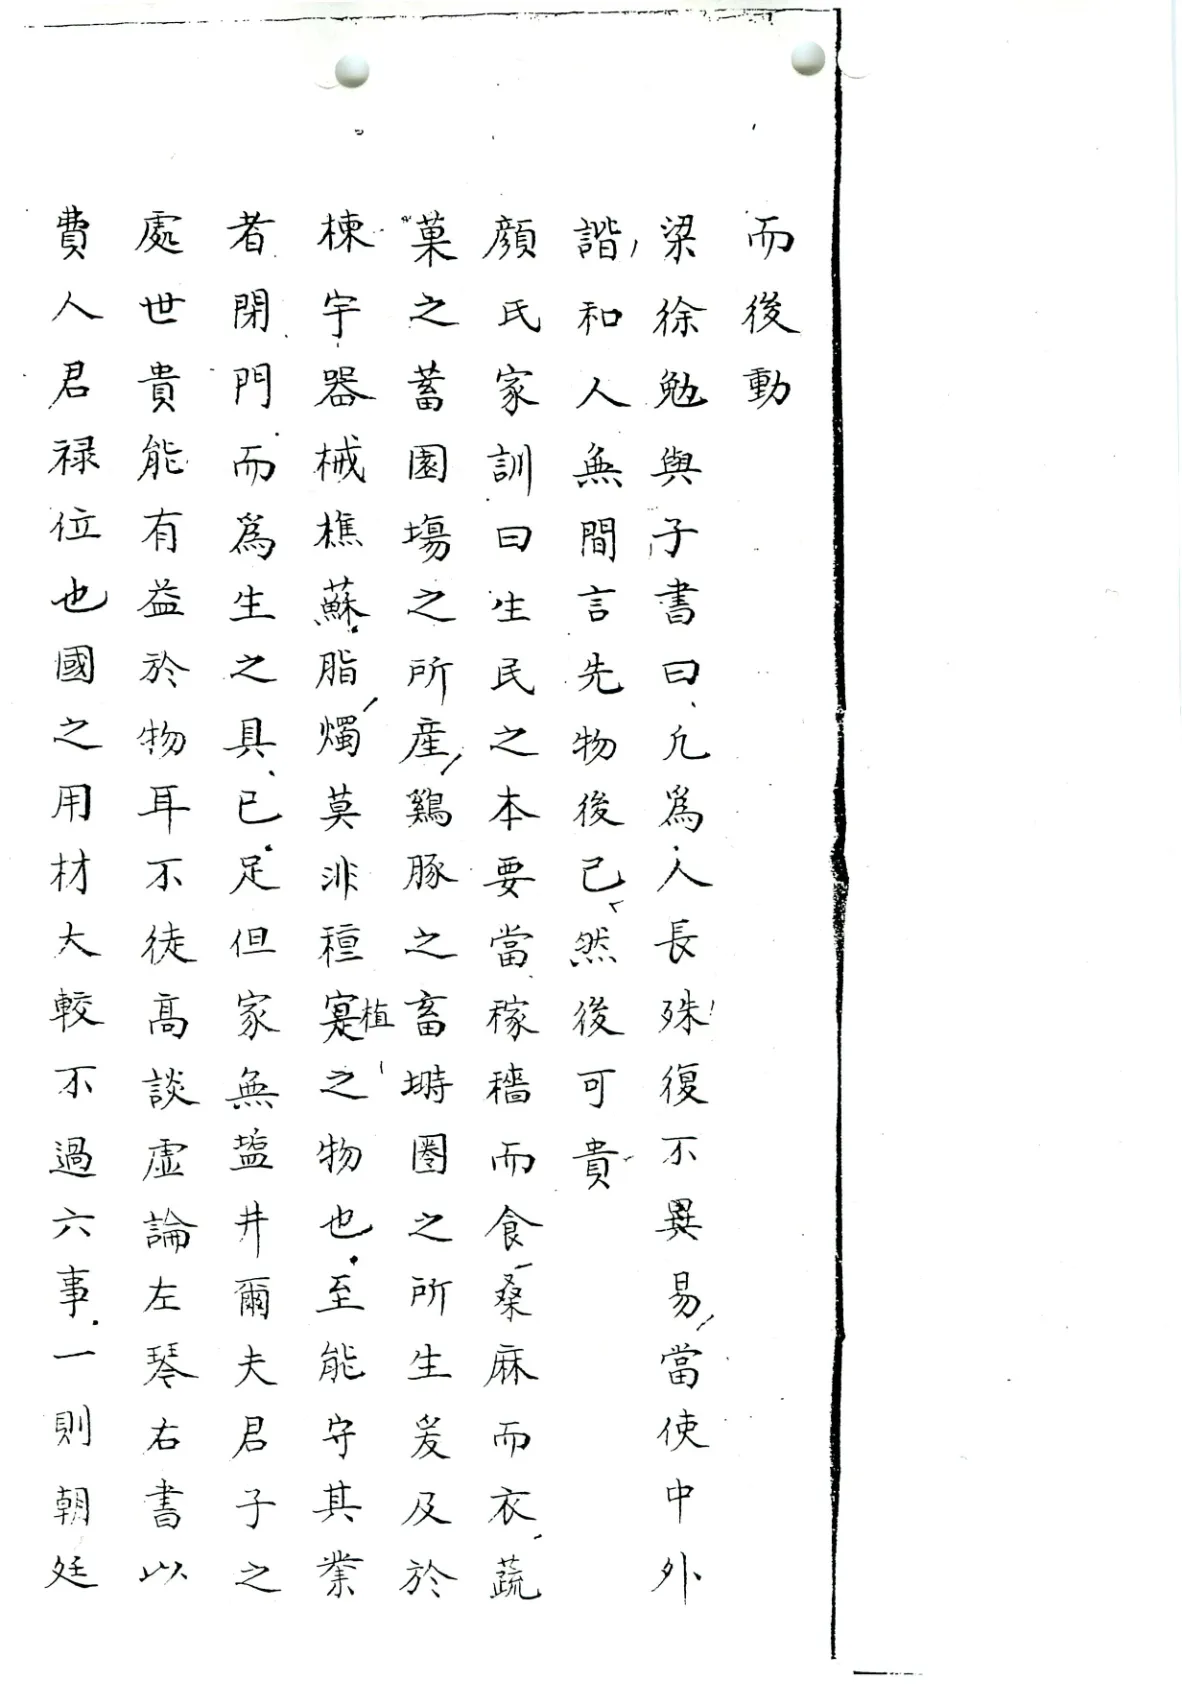 而後動
梁徐勉與子書曰凢為人長殊復不異易當使中外
諧和人無間言先物後己然後可貴
顔氏家訓曰生民之本要當稼穡而食桑麻而衣蔬
菓之蓄園塲之所産鷄豚之畜塒圏之所生爰及於
棟宇器械樵蘇脂燭莫非種寔植之物也至能守其業
者閉門而為生之具已足但家無塩井爾夫君子之
處世貴能有益於物耳不徒高談虚論左琴右書以
費人君禄位也國之用材大較不過六事一則朝廷